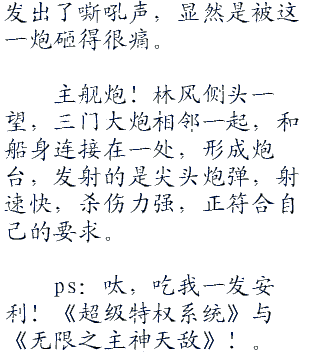 发出了嘶吼声，显然是被这
一炮砸得很痛。
主舰炮！林风侧头一
望，三门大炮相邻一起，和
船身连接在一处，形成炮
台，发射的是尖头炮弹，射
速快，杀伤力强，正符合自
己的要求。
ps：呔，吃我一发安
利！《超级特权系统》与
《无限之主神天敌》！。